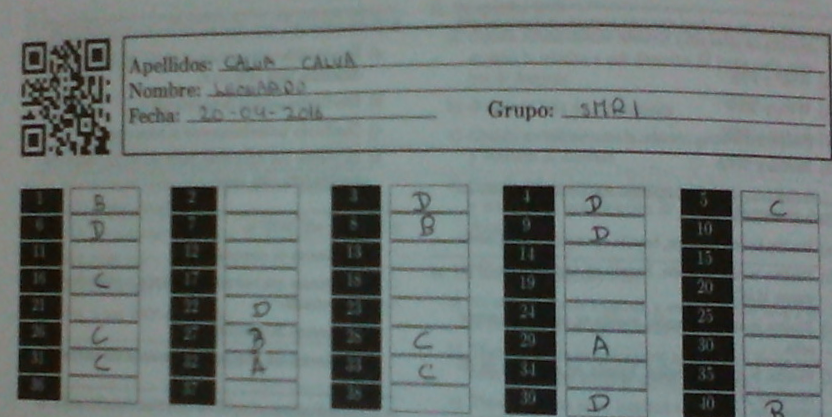 Apellidos: CALVA CALVA
Nombre: LEONARDO
Fecha: 20-04-2016 Grupo: SMR1
1 B 2 3 D 4 D 5 C
6 D 7 8 B 9 D 10
11 12 13 14 15
16 C 17 18 19 20
21 22 D 23 24 25
26 C 27 B 28 C 29 A 30
31 C 32 A 33 C 34 35
36 37 38 39 D 40 B